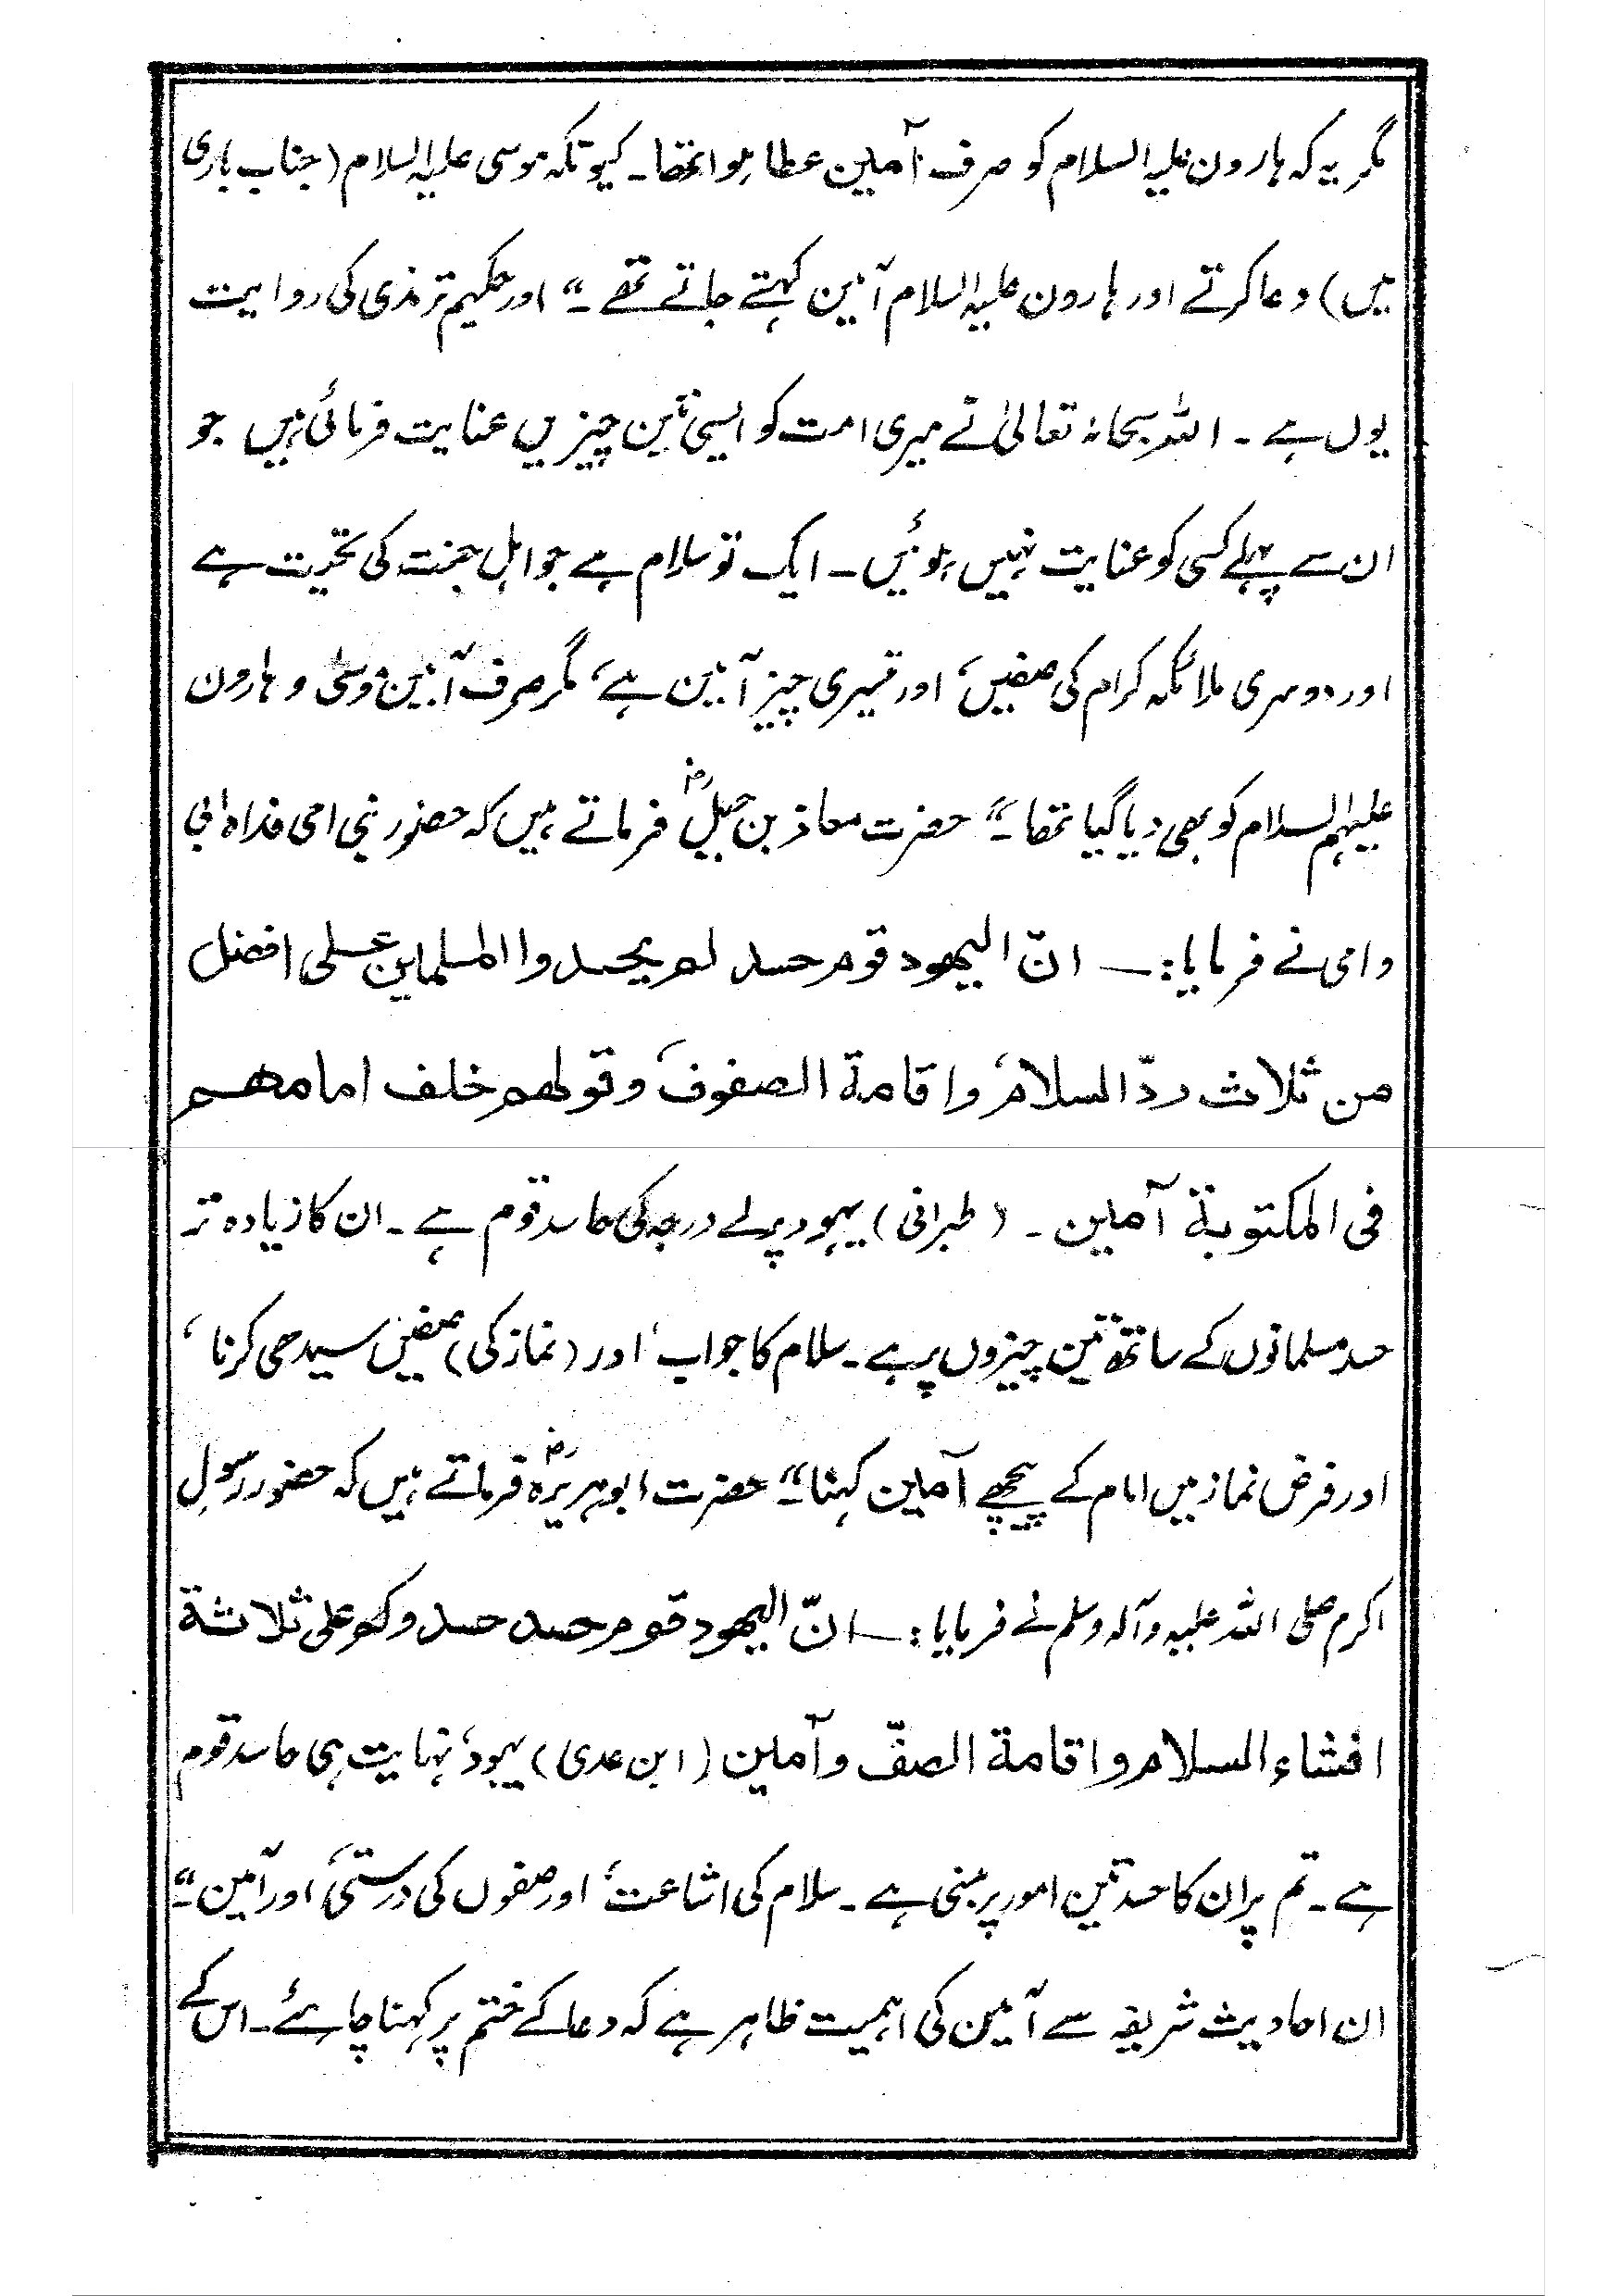 مگر یہ کہ ہارون علیہ السلام کو صرف آمین عطا ہوا تھا۔ کیونکہ موسی علیہ السلام (جناب باری
میں) دعا کرتے اور ہارون علیہ السلام آمین کہتے جاتے تھے ۔“ اور حکیم ترمذی کی روایت
یوں ہے ۔ اللہ سبحانہٗ تعالیٰ نے میری امت کو ایسی تین چیزیں عنایت فرمائی ہیں جو
ان سے پہلے کسی کو عنایت نہیں ہوئیں ۔ ایک تو سلام ہے جو اہل جنت کی تحیت ہے
اور دوسری ملائکہ کرام کی صفیں، اور تیسری چیز آمین ہے، مگر صرف آمین موسیٰ و ہارون
علیہم السلام کو بھی دیا گیا تھا ۔“ حضرت معاذ بن جبلؓ فرماتے ہیں کہ حضور نبی امی فداہ ابی
و امی نے فرمایا :— انّ الیھود قوم حسد لم یحسدوا المسلمین علی افضل
من ثلاث ردّ السلام، واقامة الصفوف، وقولھم خلف امامھم
فی المکتوبة آمین ۔ (طبرانی) یہود پرلے درجہ کی حاسد قوم ہے ۔ ان کا زیادہ تر
حسد مسلمانوں کے ساتھ تین چیزوں پر ہے ۔ سلام کا جواب، اور (نماز کی) صفیں سیدھی کرنا،
اور فرض نماز میں امام کے پیچھے آمین کہنا ۔“ حضرت ابوہریرہؓ فرماتے ہیں کہ حضور رسولِ
اکرم صلی اللہ علیہ وآلہ وسلم نے فرمایا :— انّ الیھود قوم حسد حسدوکم علی ثلاثة
افشاء السلام واقامة الصفّ وآمین (ابن عدی) یہود، نہایت ہی حاسد قوم
ہے ۔ تم پر ان کا حسد تین امور پر مبنی ہے ۔ سلام کی اشاعت، اور صفوں کی درستی، اور آمین ۔“
ان احادیث شریفہ سے آمین کی اہمیت ظاہر ہے کہ دعا کے ختم پر کہنا چاہئے ۔ اس کے